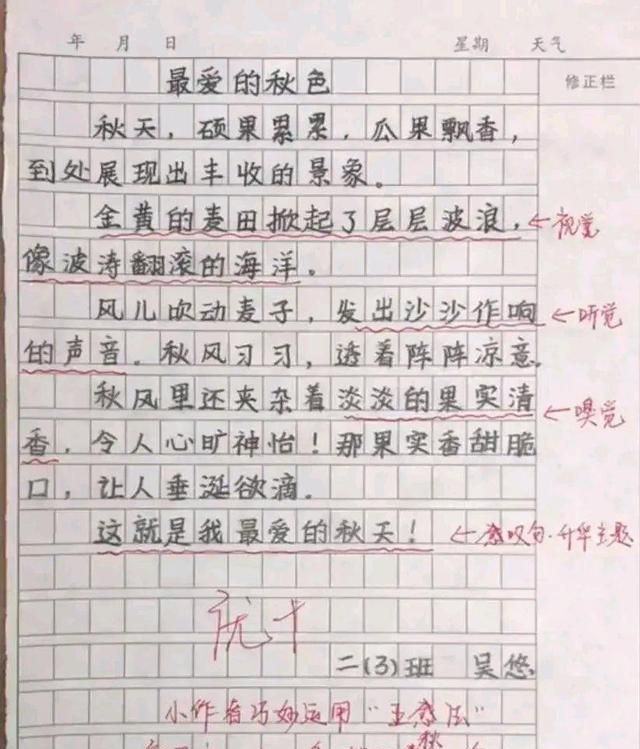 年 月 日 星期 天气
修正栏
最爱的秋色
秋天，硕果累累，瓜果飘香，
到处展现出丰收的景象。
金黄的麦田掀起了层层波浪，←视觉
像波涛翻滚的海洋。
风儿吹动麦子，发出沙沙作响←听觉
的声音。秋风习习，透着阵阵凉意。
秋风里还夹杂着淡淡的果实清←嗅觉
香，令人心旷神怡！那果实香甜脆
口，让人垂涎欲滴。
这就是我最爱的秋天！←感叹句·升华主题
优+
二(3)班 吴悠
小作者巧妙运用“五感法”
秋